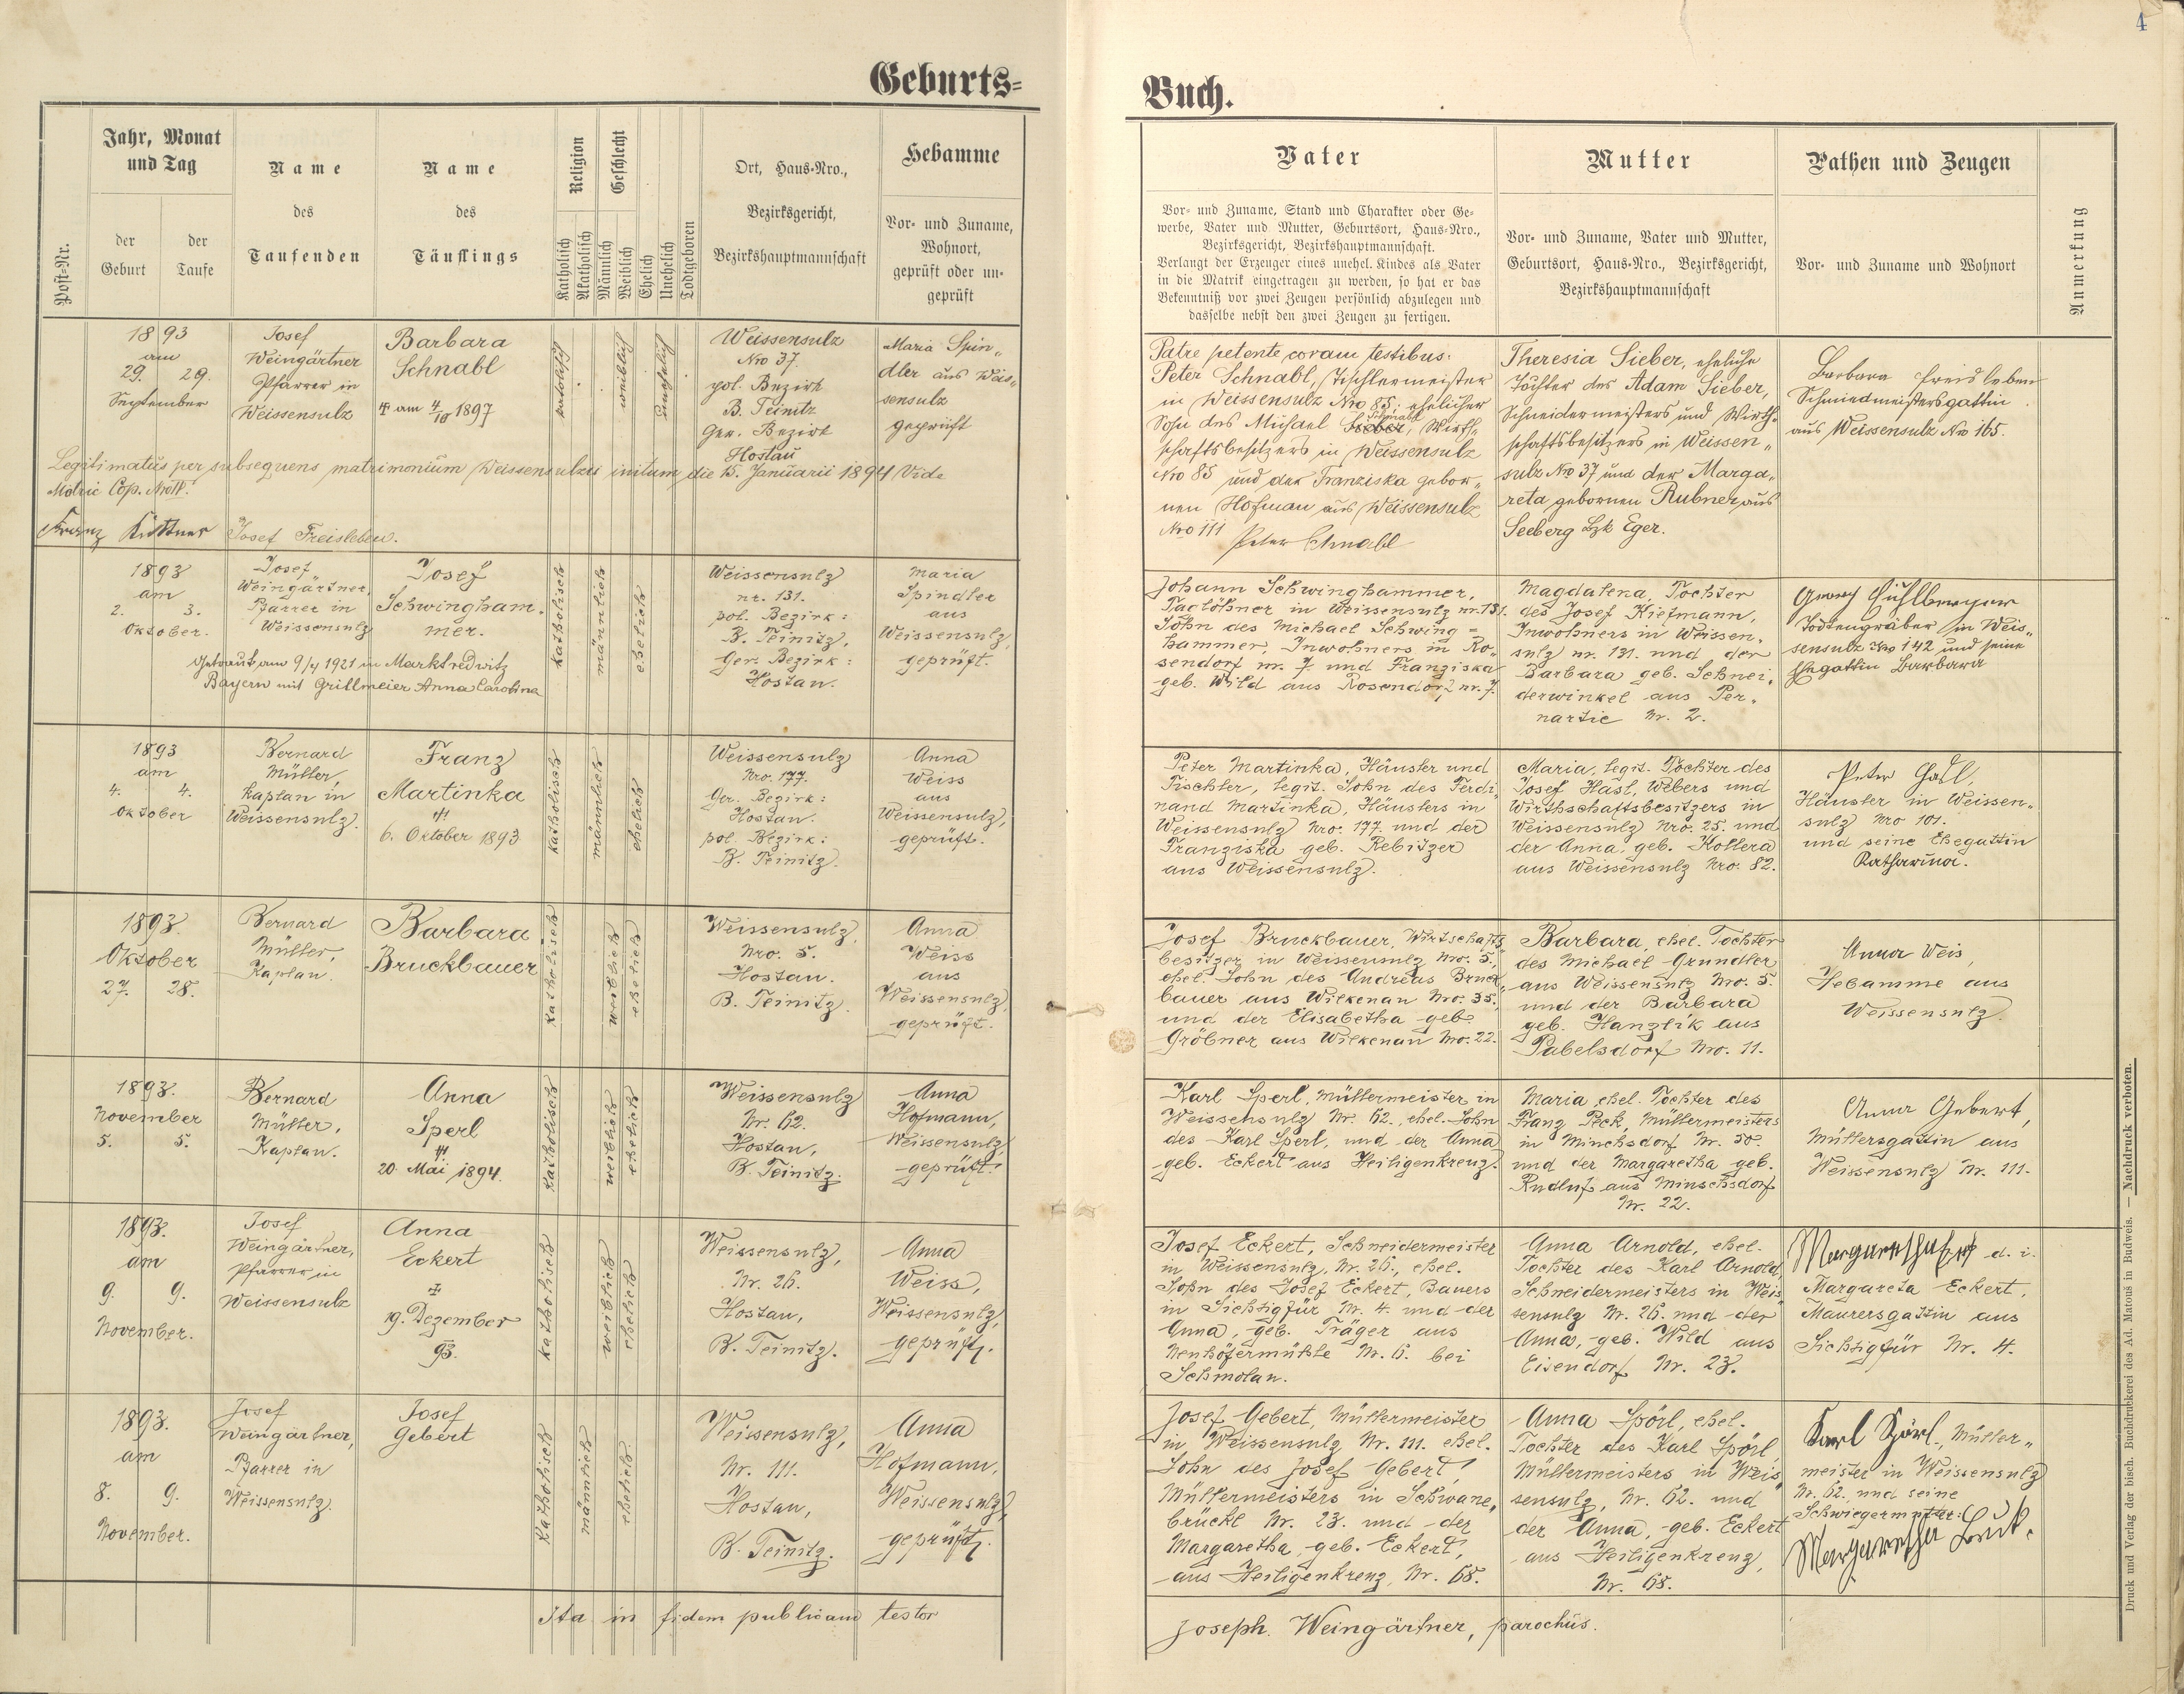 4
Geburts=
Buch.
Post-Nr.
Jahr, Monat
und Tag
der
Geburt
der
Taufe
Name
des
Taufenden
Name
des
Täuflings
Religion
Katholisch
Akatholisch
Geschlecht
Männlich
Weiblich
Ehelich
Unehelich
Todtgeboren
Ort, Haus-Nro.,
Bezirksgericht,
Bezirkshauptmannschaft
Hebamme
Vor- und Zuname,
Wohnort,
geprüft oder un-
geprüft
Vater
Vor- und Zuname, Stand und Charakter oder Ge-
werbe, Vater und Mutter, Geburtsort, Haus-Nro.,
Bezirksgericht, Bezirkshauptmannschaft.
Verlangt der Erzeuger eines unehel. Kindes als Vater
in die Matrik eingetragen zu werden, so hat er das
Bekenntniß vor zwei Zeugen persönlich abzulegen und
dasselbe nebst den zwei Zeugen zu fertigen.
Mutter
Vor- und Zuname, Vater und Mutter,
Geburtsort, Haus-Nro., Bezirksgericht,
Bezirkshauptmannschaft
Pathen und Zeugen
Vor- und Zuname und Wohnort
Anmerkung
1893
am
29. 29.
September
Josef
Weingärtner
Pfarrer in
Weissensulz
Barbara
Schnabl
am 4/10 1897
katolisch
weiblich
unehelich
Weissensulz
Nro 37.
pol. Bezirk
B. Teinitz
Ger. Bezirk
Hostau
Maria Spin„
dler aus Weis„
sensulz
geprüft
Legitimatus per subsequens matrimonium Weissensulzii initum die 15. Januarii 1894 Vide
Matric Cop.
Franz Kuttner Josef Freisleben.
Patre petente coram testibus:
Peter Schnabl, Tischlermeister
in Weissensulz Nro 85, ehelicher
Schnabl
Sohn des Michael Sieber, Wirth„
schaftsbesitzers in Weissensulz
Nro 85 und der Franziska gebor„
nen Hofman aus Weissensulz
Nro 111
Peter Schnabl
Theresia Sieber, eheliche
Tochter des Adam Sieber,
Schneidermeisters und Wirth„
schaftsbesitzers in Weissen„
sulz Nro 37 und der Marga„
reta gebornen Rubner aus
Seeberg Bzk Eger.
Barbara Freisleben
Schmiedmeistersgattin
aus Weissensulz Nro 165.
1893
am
2. 3.
Oktober.
Josef
Weingärtner,
Pfarrer in
Weissensulz
Josef
Schwingham„
mer.
Getraut am 9/4 1921 in Marktredwitz
Bayern mit Grillmeier Anna Carolina
katholisch
männlich
ehelich
Weissensulz
nr. 131.
pol. Bezirk:
B. Teinitz,
Ger. Bezirk:
Hostau.
Maria
Spindler
aus
Weissensulz,
geprüft.
Johann Schwinghammer,
Taglöhner in Weissensulz nr. 131.
Sohn des Michael Schwing=
hammer, Inwohners in Ro„
sendorf nr. 7. und Franziska
geb. Wild aus Rosendorf nr. 7.
Magdalena, Tochter
des Josef Kietmann,
Inwohners in Weissen„
sulz nr. 131. und der
Barbara geb. Schnei„
derwinkel aus Per„
nartic Nr. 2.
Georg
Todtengräber in Weis„
sensulz Nro 142 und seine
Ehegattin Barbara
1893
am
4. 4.
Oktober
Bernard
Müller,
Kaplan in
Weissensulz.
Franz
Martinka
6. Oktober 1893.
katholisch
männlich
ehelich
Weissensulz
Nro. 177.
Ger. Bezirk:
Hostau.
pol. Bezirk:
B. Teinitz.
Anna
Weiss
aus
Weissensulz,
geprüft.
Peter Martinka, Häusler und
Tischler, legit. Sohn des Ferdi„
nand Martinka, Häuslers in
Weissensulz Nro. 177. und der
Franziska geb. Rebitzer
aus Weissensulz.
Maria, legit. Tochter des
Josef Hasl, Webers und
Wirthschaftsbesitzers in
Weissensulz Nro. 25. und
der Anna, geb. Kollera
aus Weissensulz Nro. 82.
Peter Hasl,
Häusler in Weissen„
sulz Nro 101.
und seine Ehegattin
Katharina.
1893.
Oktober
27. 28.
Bernard
Müller,
Kaplan.
Barbara
Bruckbauer
katholisch
weiblich
ehelich
Weissensulz,
Nro. 5.
Hostau.
B. Teinitz.
Anna
Weiss
aus
Weissensulz,
geprüft.
Josef Bruckbauer, Wirtschafts„
besitzer in Weissensulz Nro. 5.,
ehel. Sohn des Andreas Bruck„
bauer aus Wilkenau Nro. 35.
und der Elisabetha geb.
Gröbner aus Wilkenau Nro. 22.
Barbara, ehel. Tochter
des Michael Grundler
aus Weissensulz Nro. 5.
und der Barbara
geb. Hanzlík aus
Pabelsdorf Nro. 11.
Anna Weis,
Hebamme aus
Weissensulz.
1893.
November
5. 5.
Bernard
Müller,
Kaplan.
Anna
Sperl
20. Mai 1894.
katholisch
weiblich
ehelich
Weissensulz
Nr. 62.
Hostau,
B. Teinitz.
Anna
Hofmann,
Weissensulz,
geprüft.
Karl Sperl, Müllermeister in
Weissensulz Nr. 62., ehel. Sohn
des Karl Sperl, und der Anna
geb. Eckert aus Heiligenkreuz.
Maria ehel. Tochter des
Franz Peck, Müllermeisters
in Minchsdorf Nr. 50.
und der Margaretha geb.
Rudluf aus Minschsdorf
Nr. 22.
Anna Gebert,
Müllersgattin aus
Weissensulz Nr. 111.
1893.
am
9. 9.
November.
Josef
Weingärtner,
Pfarrer in
Weissensulz
Anna
Eckert
19. Dezember
93.
katholisch
weiblich
ehelich
Weissensulz,
Nr. 26.
Hostau,
B. Teinitz.
Anna
Weiss,
Weissensulz,
geprüft.
Josef Eckert, Schneidermeister
in Weissensulz, Nr. 26., ehel.
Sohn des Josef Eckert, Bauers
in Sichtigfür, Nr. 4. und der
Anna, geb. Träger aus
Neuhöfermühle Nr. 6. bei
Schmolau.
Anna Arnold, ehel.
Tochter des Karl Arnold,
Schneidermeisters in Weis„
sensulz Nr. 26. und der
Anna, geb. Wild aus
Eisendorf Nr. 23.
d. i.
Margareta Eckert,
Maurersgattin aus
Sichtigfür Nr. 4.
1893.
am
8. 9.
November.
Josef
Weingärtner,
Pfarrer in
Weissensulz.
Josef
Gebert
Katholisch
männlich
ehelich.
Weissensulz,
Nr. 111.
Hostau,
B. Teinitz.
Anna
Hofmann,
Weissensulz,
geprüft.
Josef Gebert, Müllermeister
in Weissensulz Nr. 111. ehel.
Sohn des Josef Gebert,
Müllermeisters in Schwane„
brückl Nr. 23. und der
Margaretha, geb. Eckert,
aus Heiligenkreuz, Nr. 68.
Anna Spörl, ehel.
Tochter des Karl Spörl,
Müllermeisters in Weis„
sensulz, Nr. 62. und
der Anna, geb. Eckert
aus Heiligenkreuz,
Nr. 68.
Karl Spörl, Müller„
meister in Weissensulz
Nr. 62. und seine
Schwiegermutter:
Margaretha
Ita in fidem publicam testor
Joseph Weingärtner, parochus.
Druck und Verlag der bisch. Buchdruckerei des Ad. Matouš in Budweis. — Nachdruck verboten.